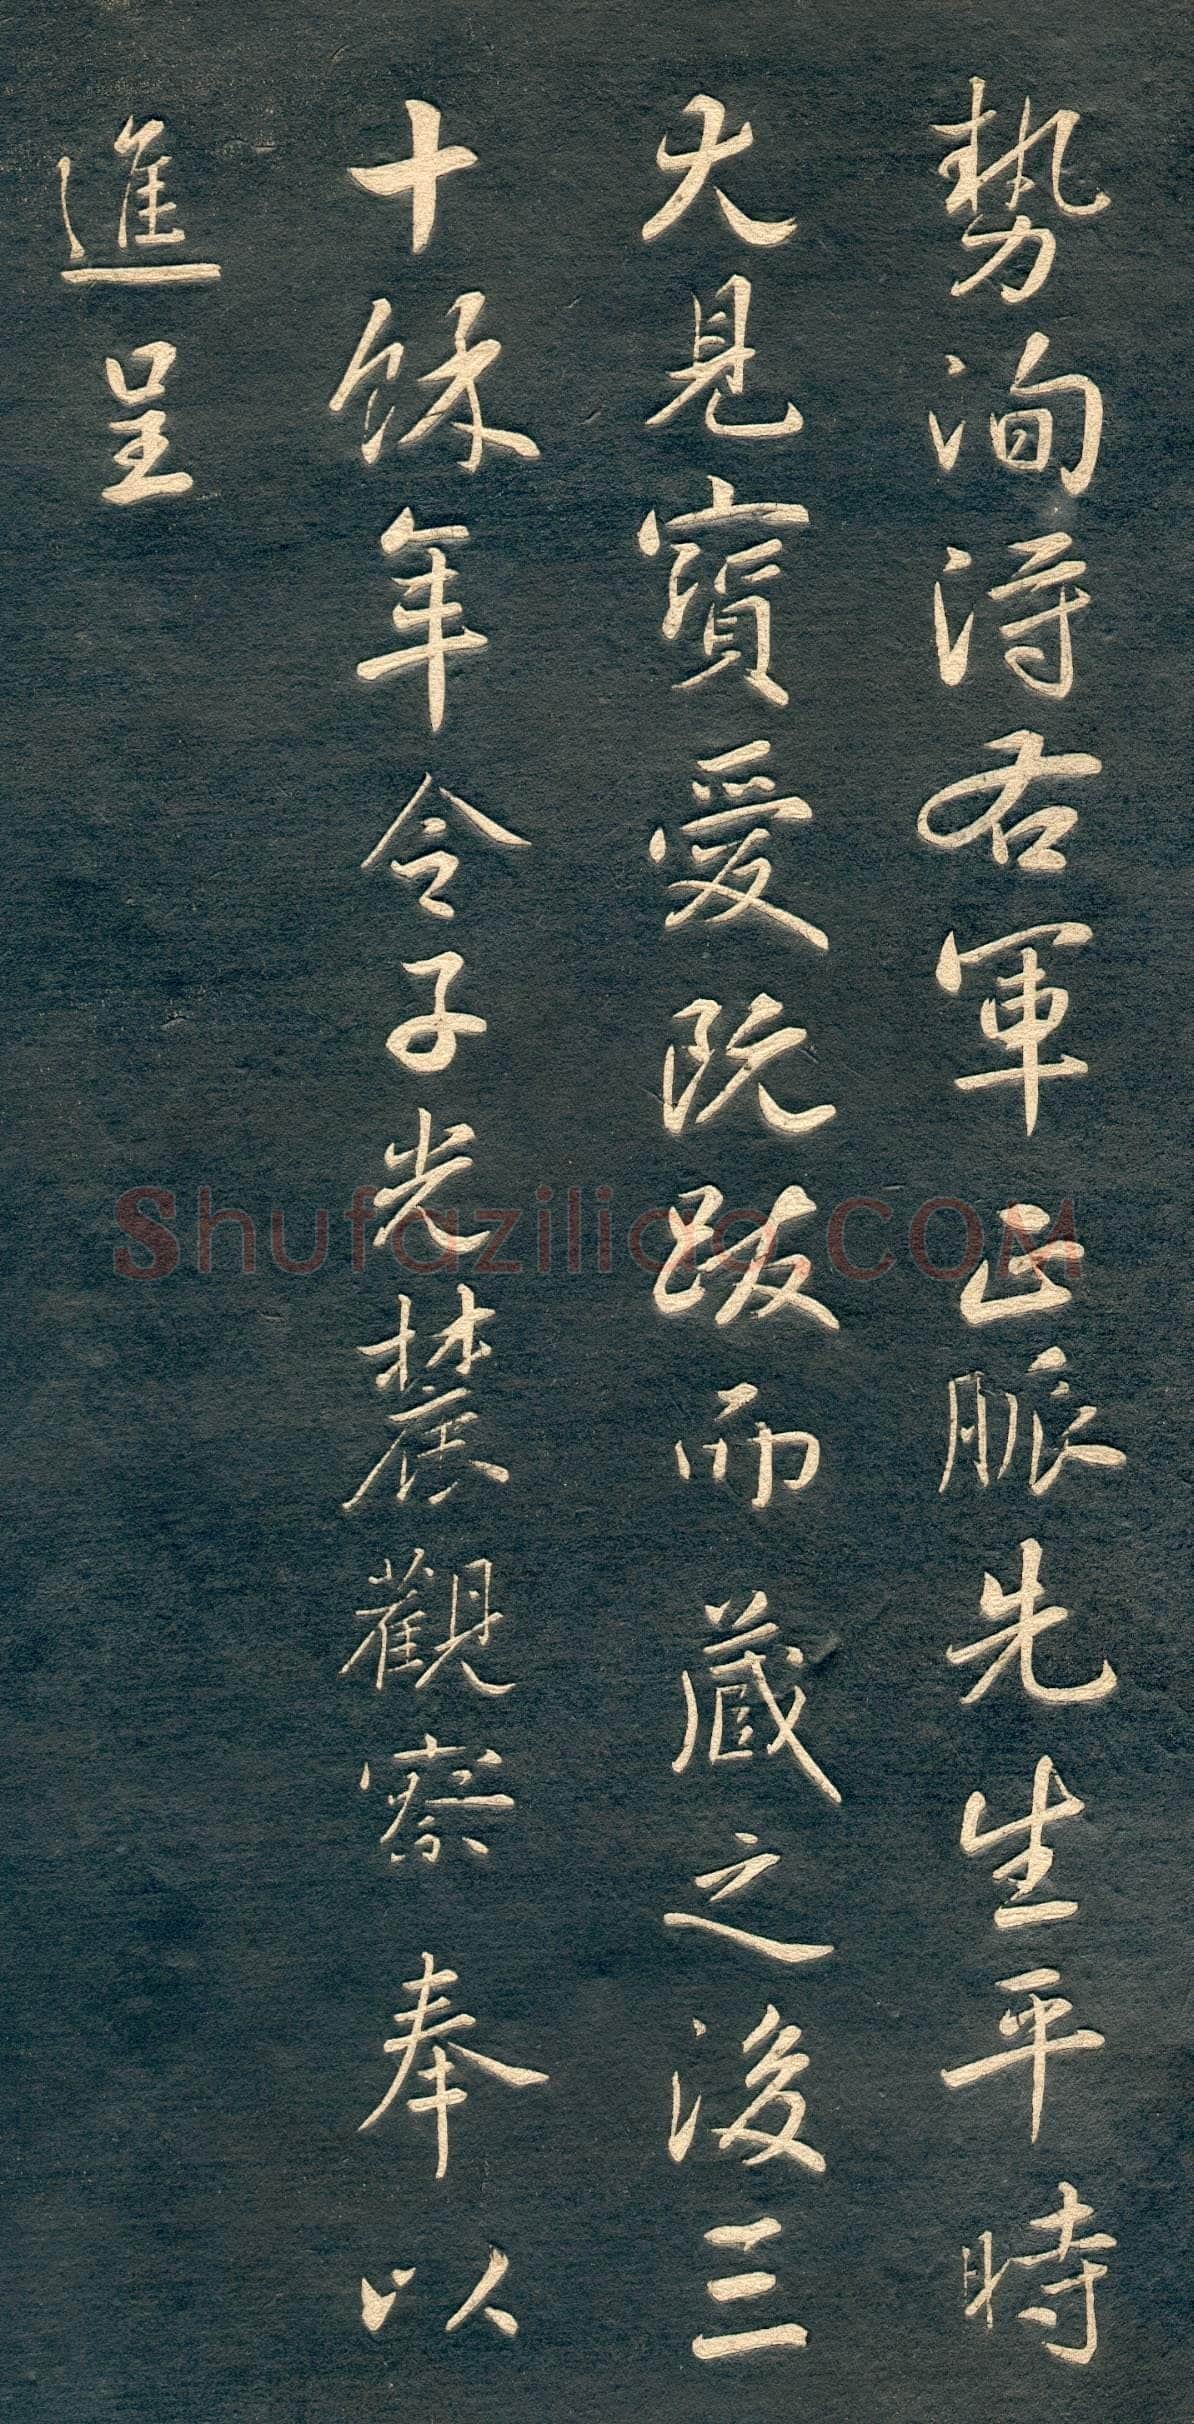 勢洵得右軍正脈先生平時
大見寳愛既跋而藏之後三
十餘年令子光麓觀察奉以
進呈
Shufaziliao.COM